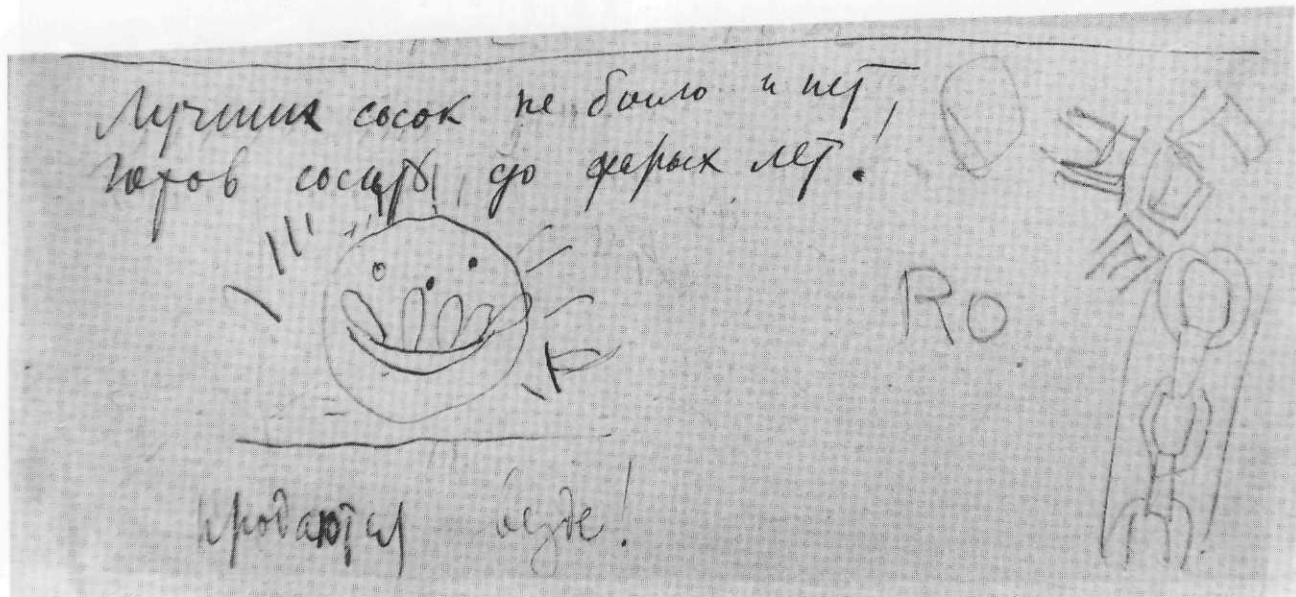 Лучших сосок не было и нет,
Готов сосать до старых лет!
RO
продаются везде!